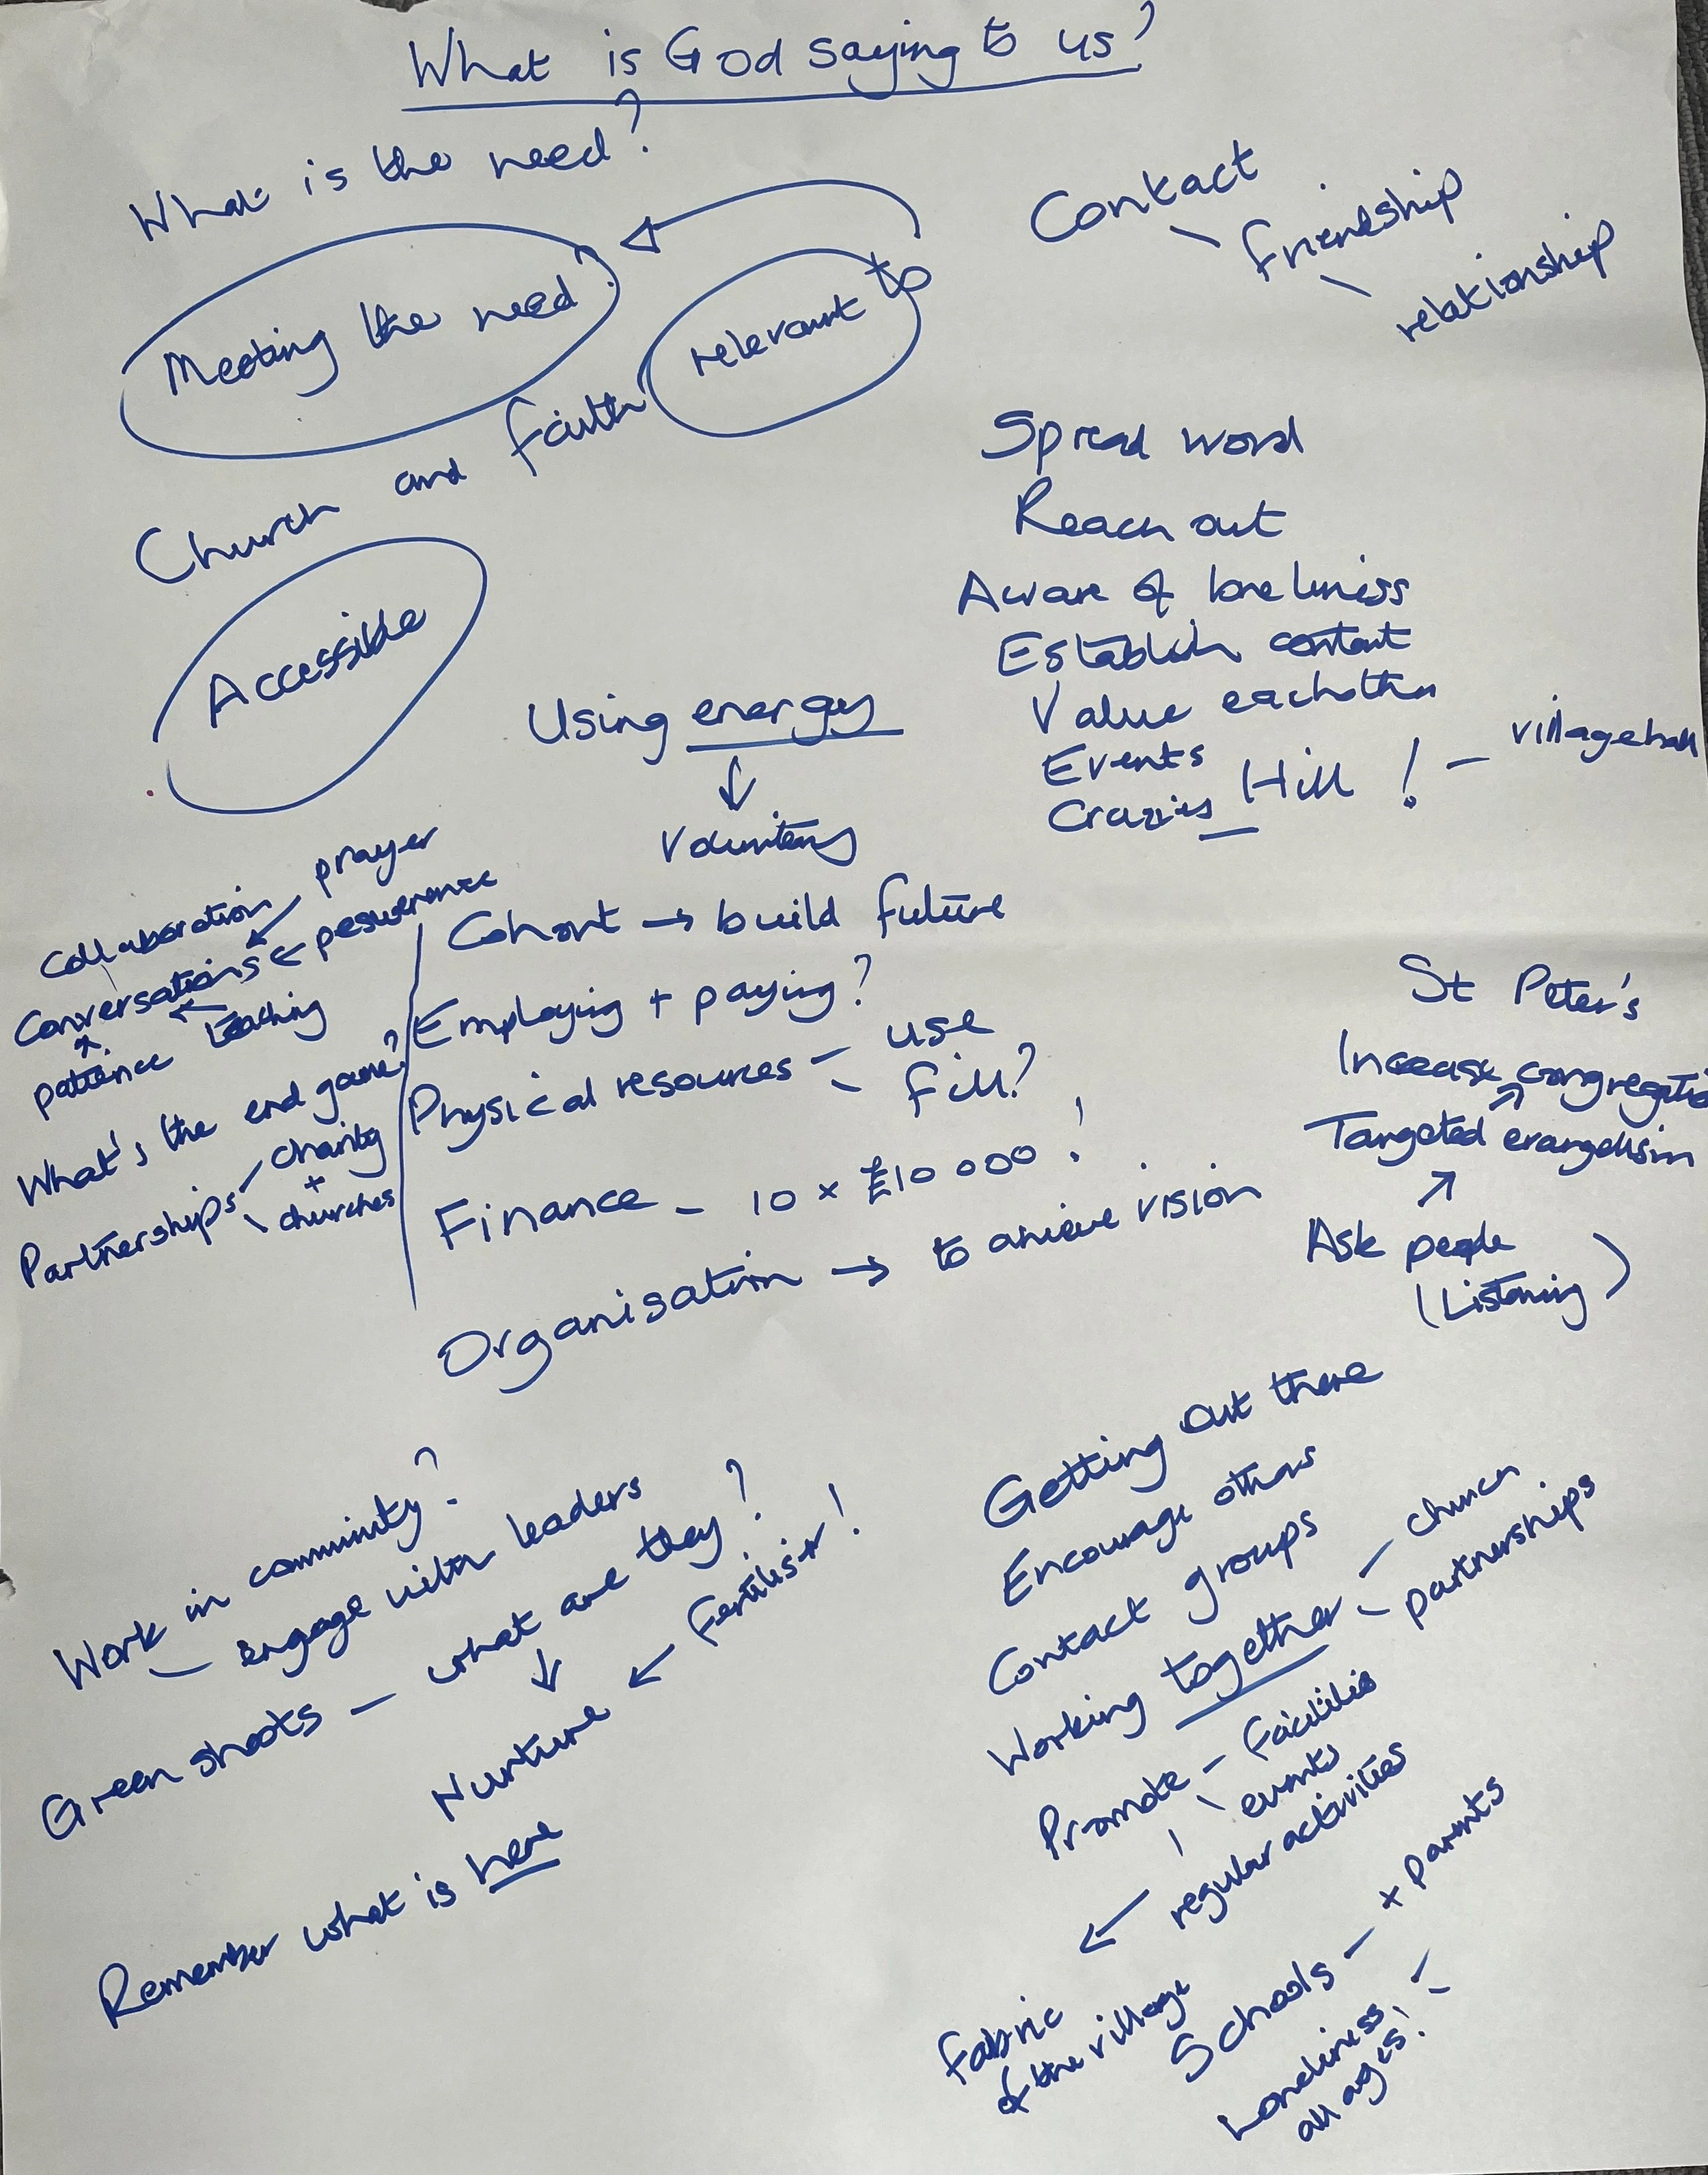 What is God saying to us?
What is the need?
Meeting the need?
Church and faith relevant to
Accessible
Contact
friendship
relationship
Spread word
Reach out
Aware of loneliness
Establish contact
Value eachother
Events
Crazies Hill! - villagehall
Using energy
Voluntary
Collaboration prayer
Conversations ← perseverence
patience teaching
What's the end game?
Partnerships charity
+
churches
Cohort → build future
Employing + paying?
Physical resources - use
fill?
Finance - 10 x £10 000!
Organisation → to achieve vision
St Peter's
Increase congregatio
Targeted evangelism
Ask people
(Listening)
Work in community?
- engage with leaders
Green shoots - what are they?
Nurture ← Fertiliser!
Remember what is here
Getting out there
Encourage others
Contact groups
Working together - church
- partnerships
Promote - facilities
events
regular activities
Fabric
of the village
Schools - + parents
Loneliness
all ages!